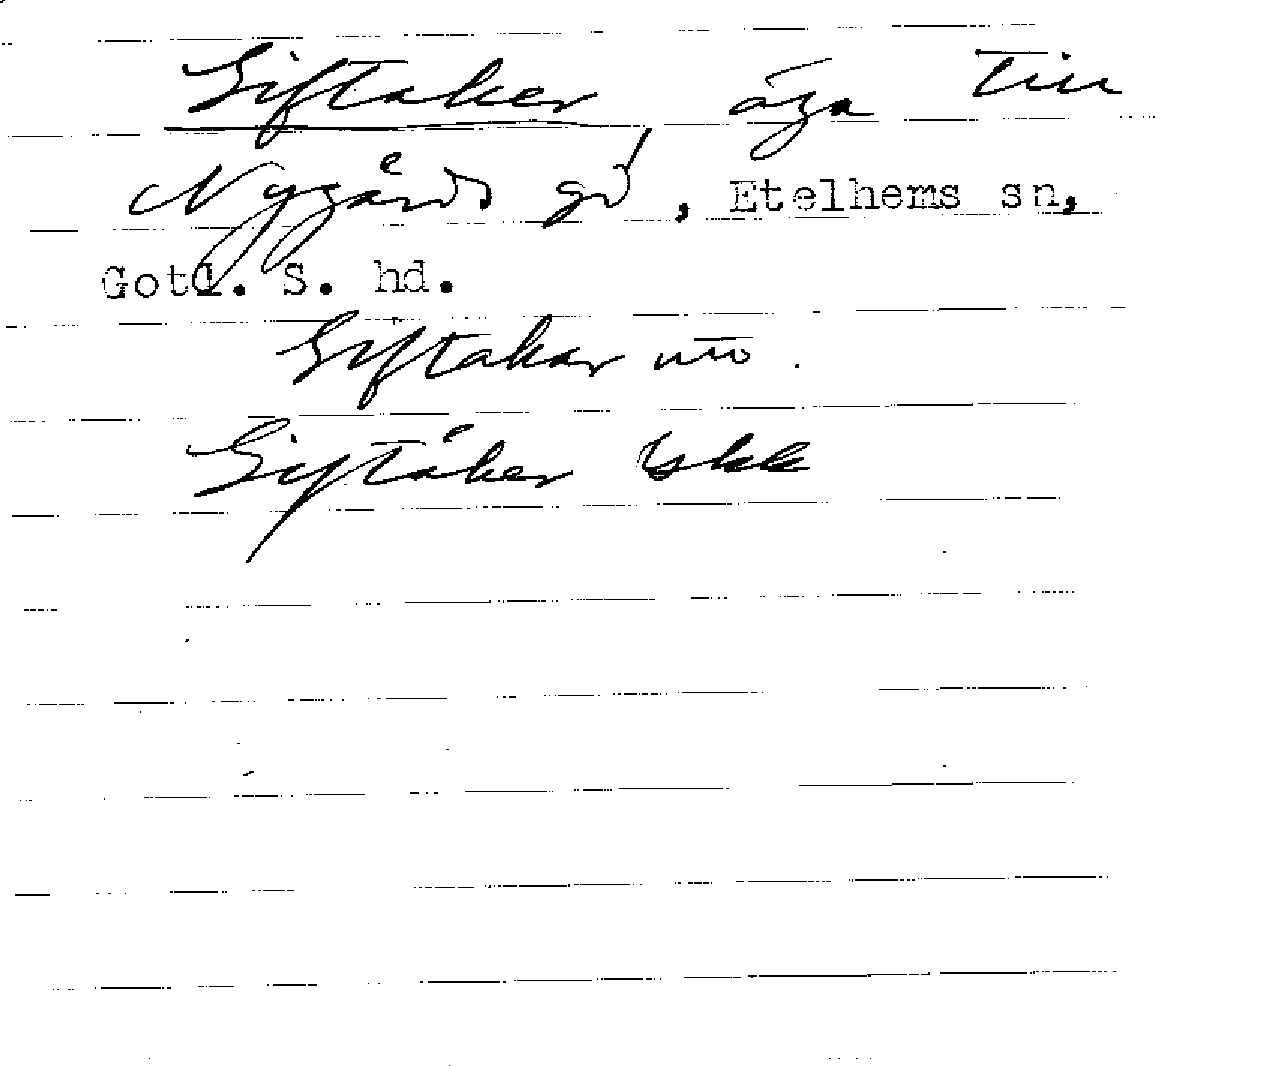 Giftaker, äga till
Nygårds gd, Etelhems sn,
Gotl. S. hd.
Giftakar uto.
Giftåker Ukk